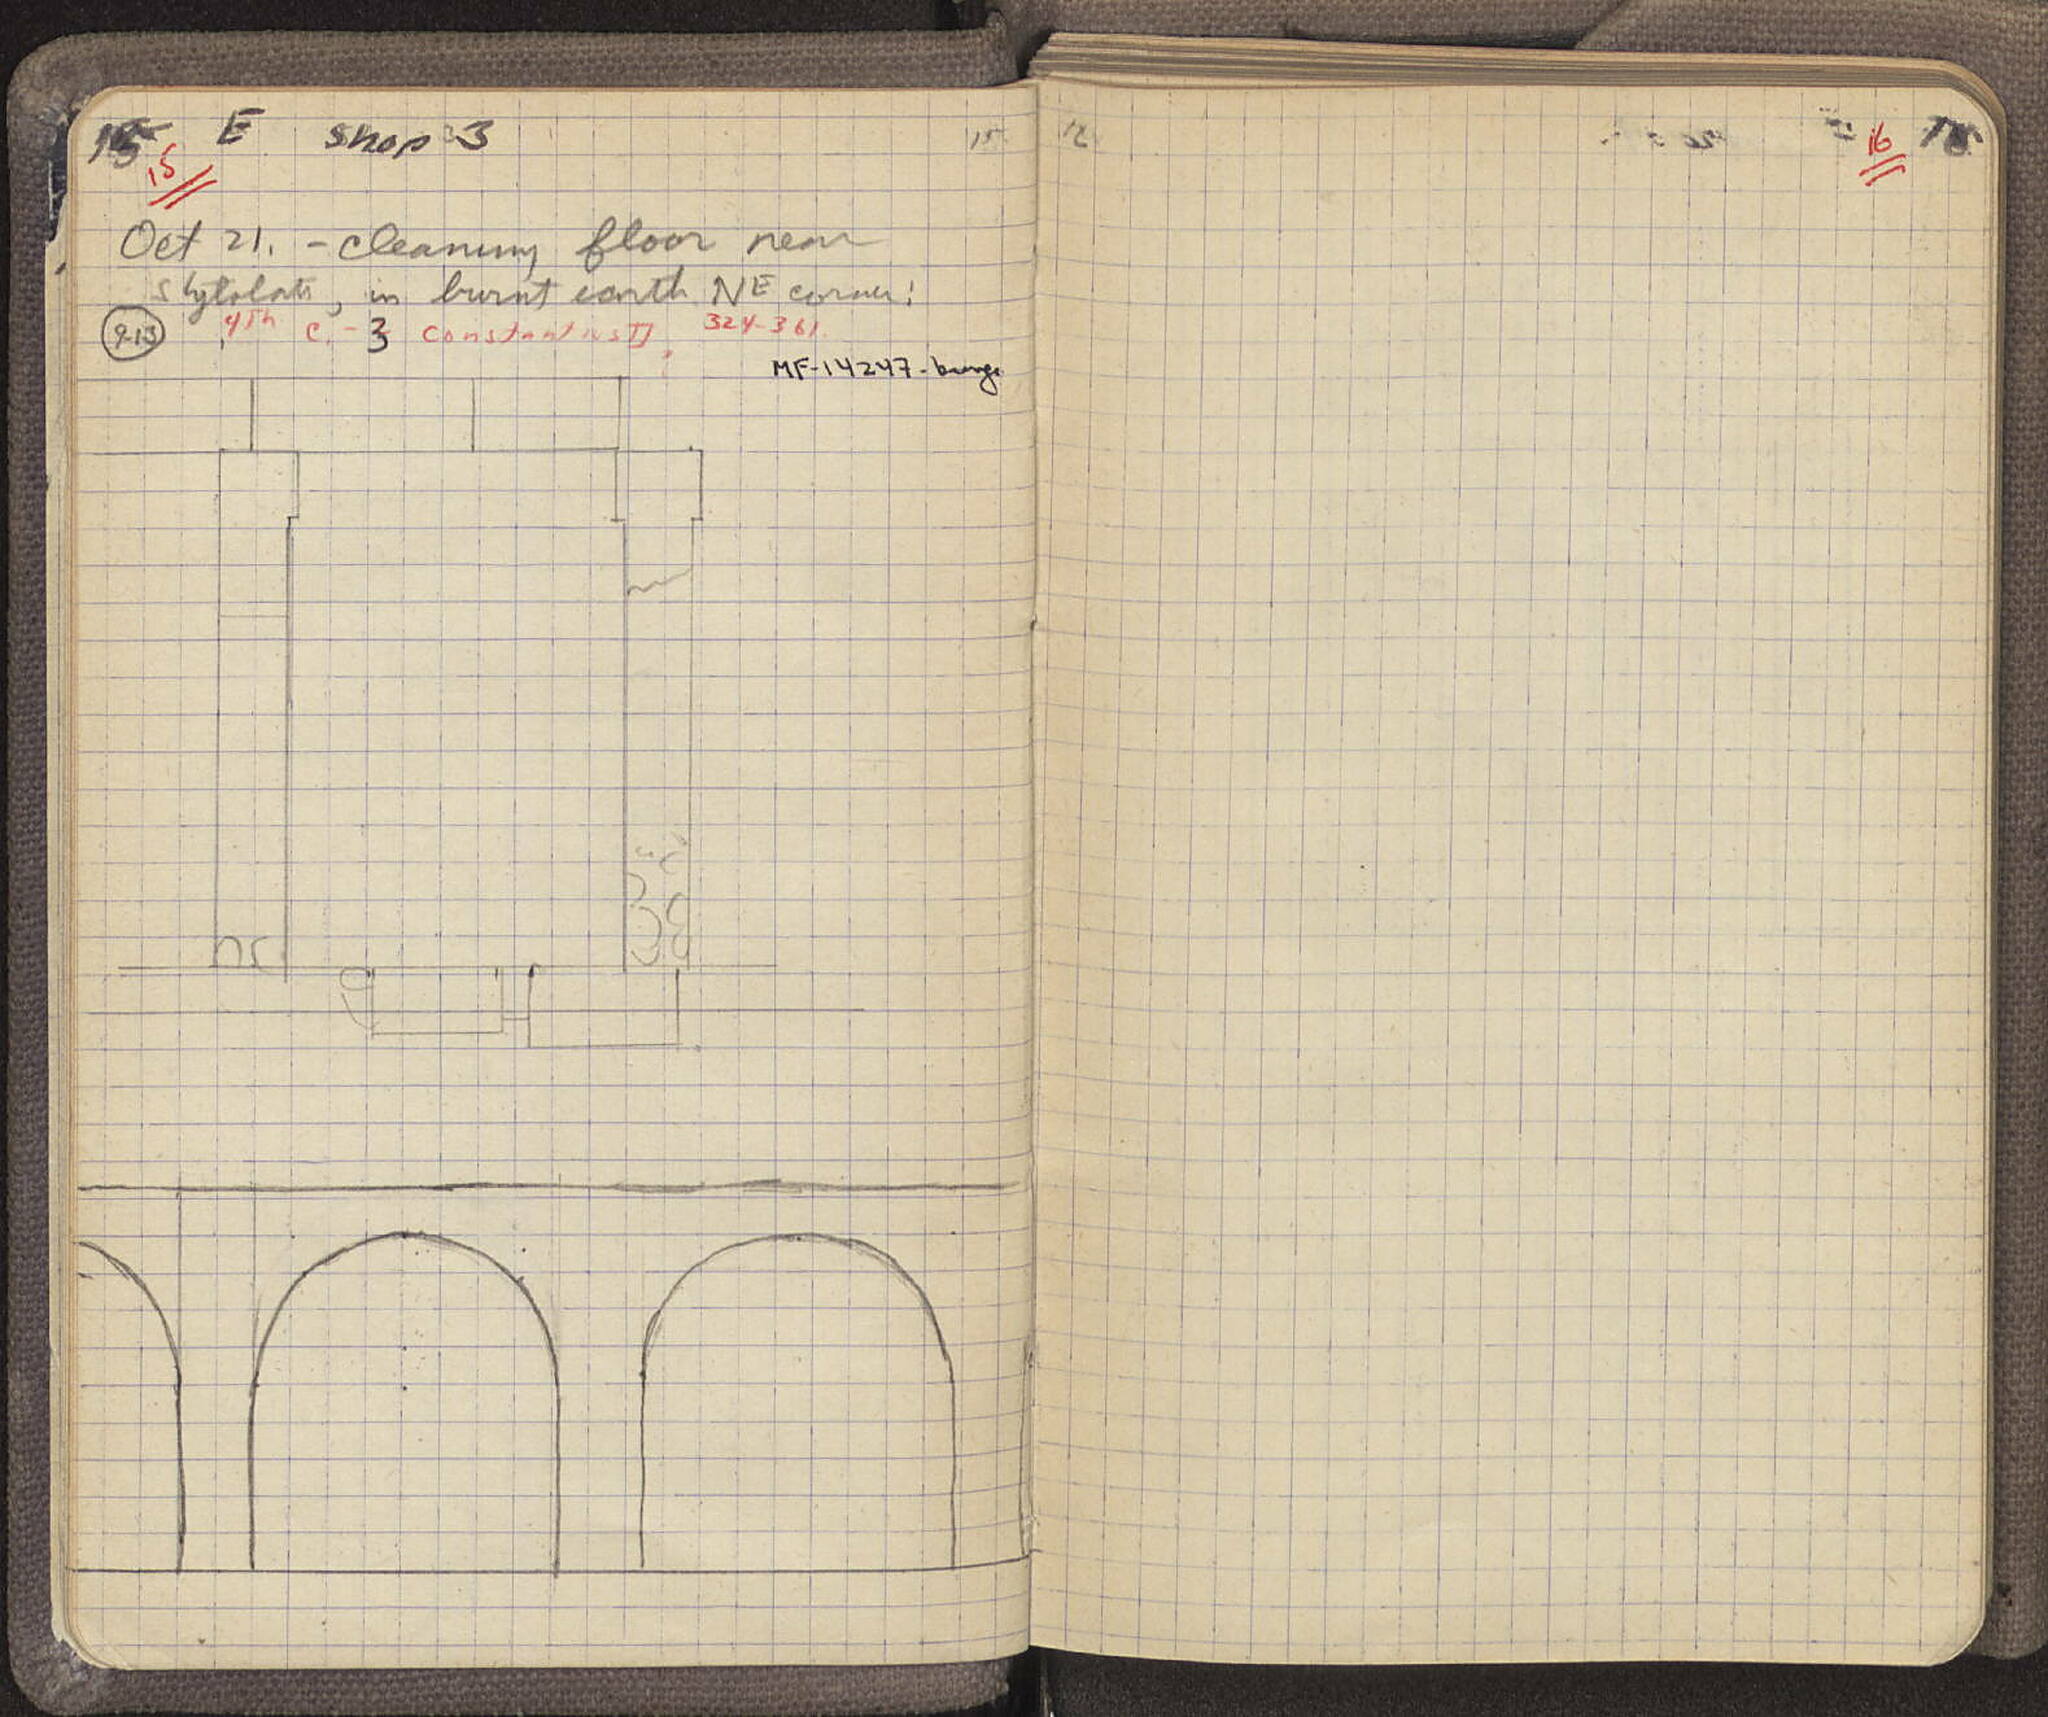 15 E Shop 3 15
15
Oct 21. - cleaning floor near
stylobate, in burnt earth NE corner:
9-13 4th c. - 3 Constantius II, 324-361.
MF-14247-
12 16
16